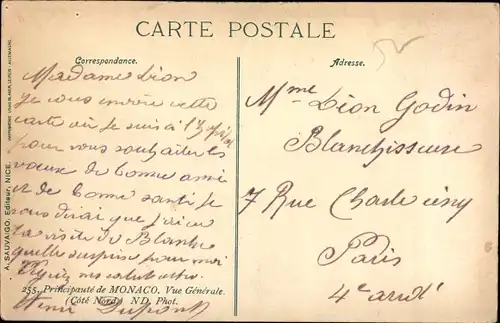 CARTE POSTALE
Correspondance.
Adresse.
Madame Lion
je vous envoie cette
carte où je suis à l'
pour vous souhaiter les
voeux de bonne année
et de bonne santé je
vous dirai que j'ai eu
la visite de Blanche
quelle surprise pour moi
255. Principauté de MONACO. Vue Générale.
(Côté Nord) ND. Phot.
Henri Dupont
Mme Léon Godin
Blanchisseuse
7 Rue Charles cinq
Paris
4e arrdt
A. SAUVAIGO, Editeur, NICE.